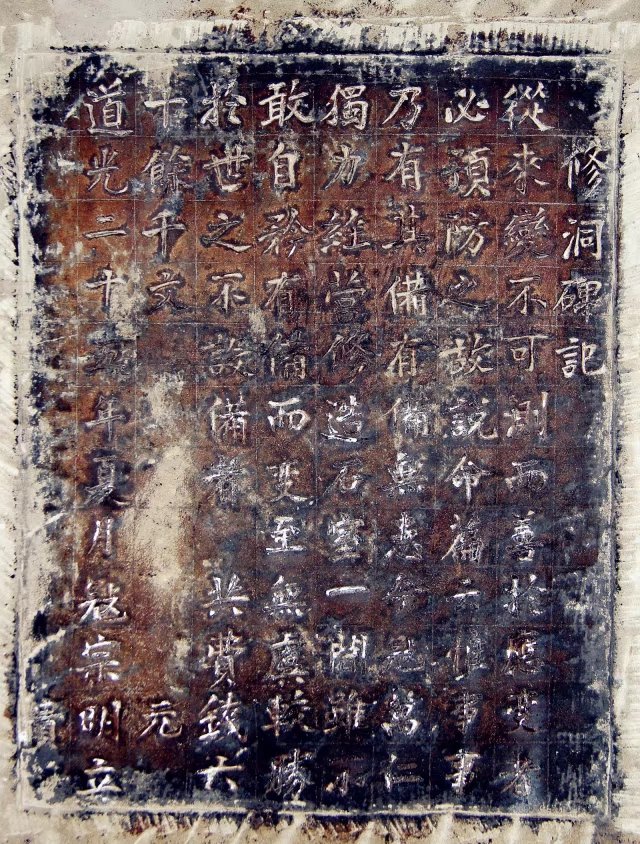 修洞碑記
從來變不可測而善於應變者
必預防之故說命篇云惟事事
乃有其備有備無患今萬仁
獨力經營修造石室一間雖不
敢自矜有備而变至無虞較勝
於世之不設備者 共費錢六
十餘千文 元
道光二十年夏月 宗明立